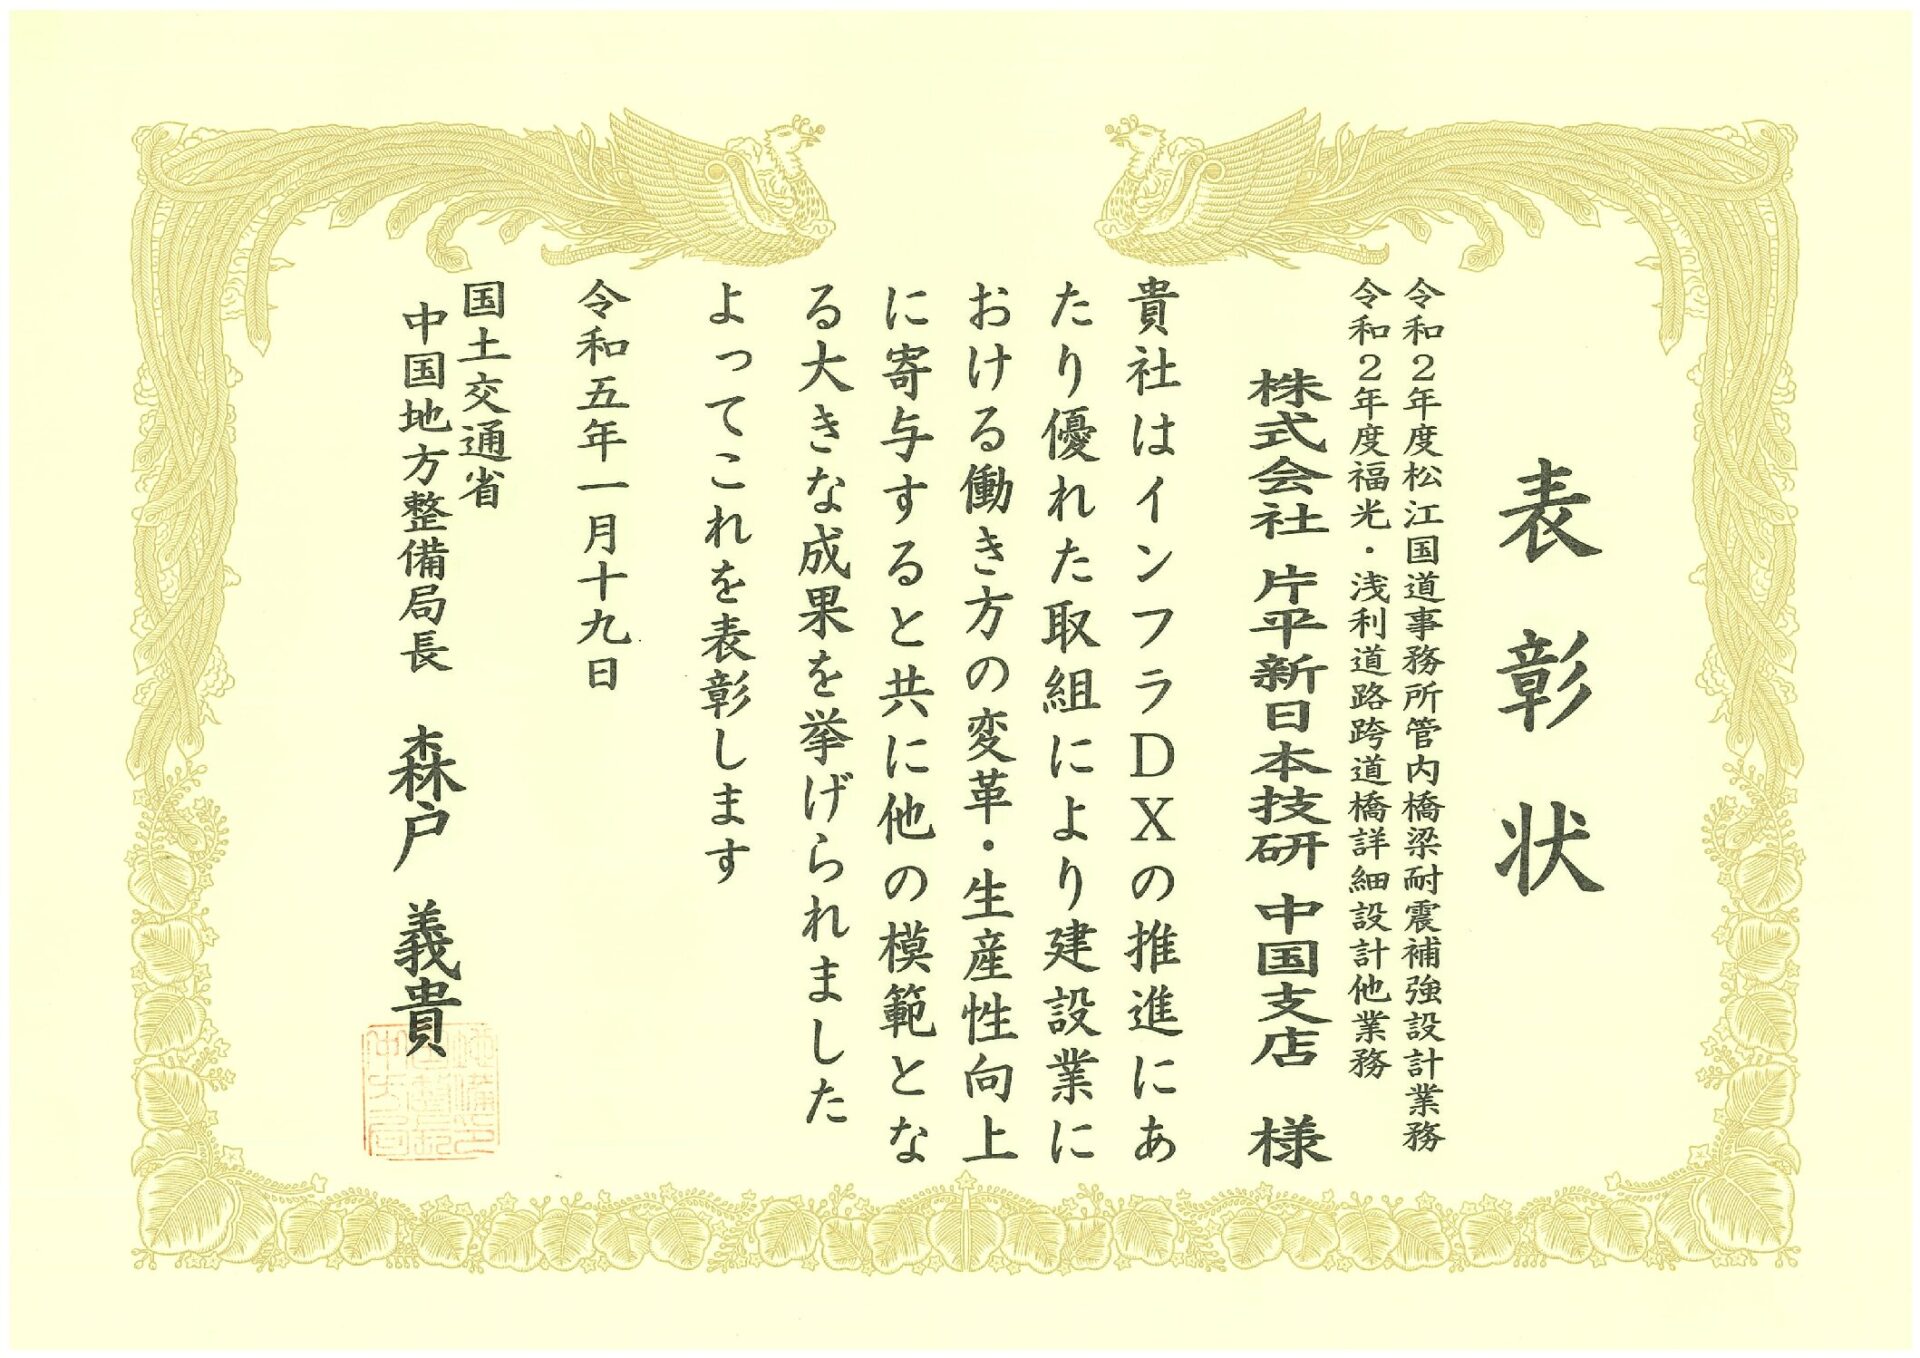 表彰状
令和２年度松江国道事務所管内橋梁耐震補強設計業務
令和２年度福光・浅利道路跨道橋詳細設計他業務
株式会社 片平新日本技研 中国支店 様
貴社はインフラＤＸの推進にあ
たり優れた取組により建設業に
おける働き方の変革・生産性向上
に寄与すると共に他の模範とな
る大きな成果を挙げられました
よってこれを表彰します
令和五年一月十九日
国土交通省
中国地方整備局長 森戸 義貴